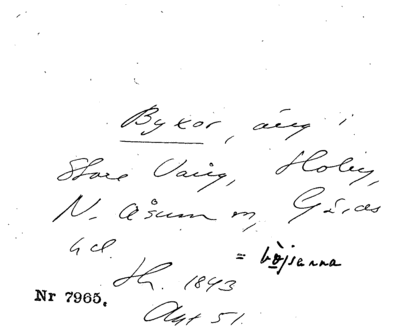 Bykor, äng i
Store Vång, Hoby,
N. Åsum sn, Gärds
hd.
= bòjsanna
Sh. 1843
Akt 51.
Nr 7965.